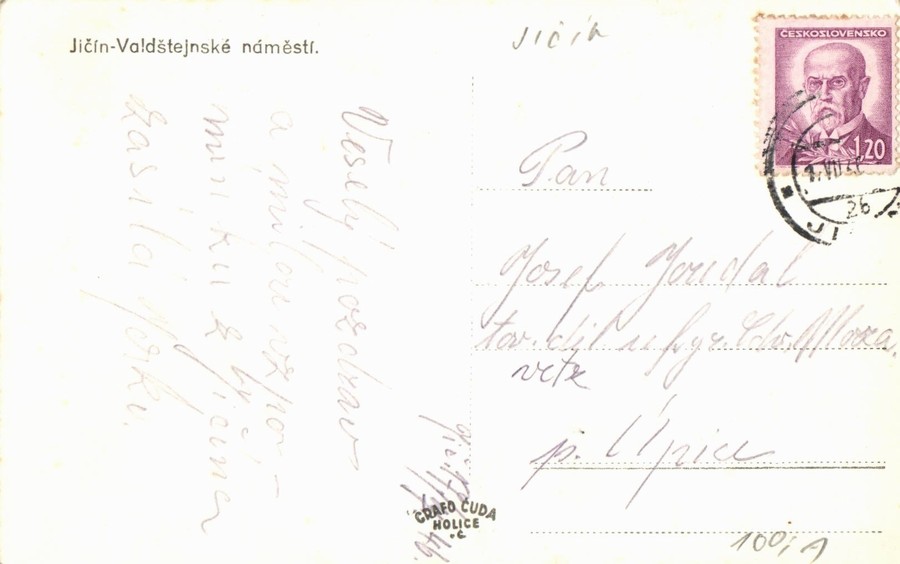 Jičín-Valdštejnské náměstí.
Jičín
ČESKOSLOVENSKO
1.20
Veselý pozdrav
a milou vzpo-
mínku z Jičína
zasílá
Pan
Josef Joudal
tov. děl u fy
p. Úpice
GRAFO ČUDA
HOLICE
26
JI
100,-